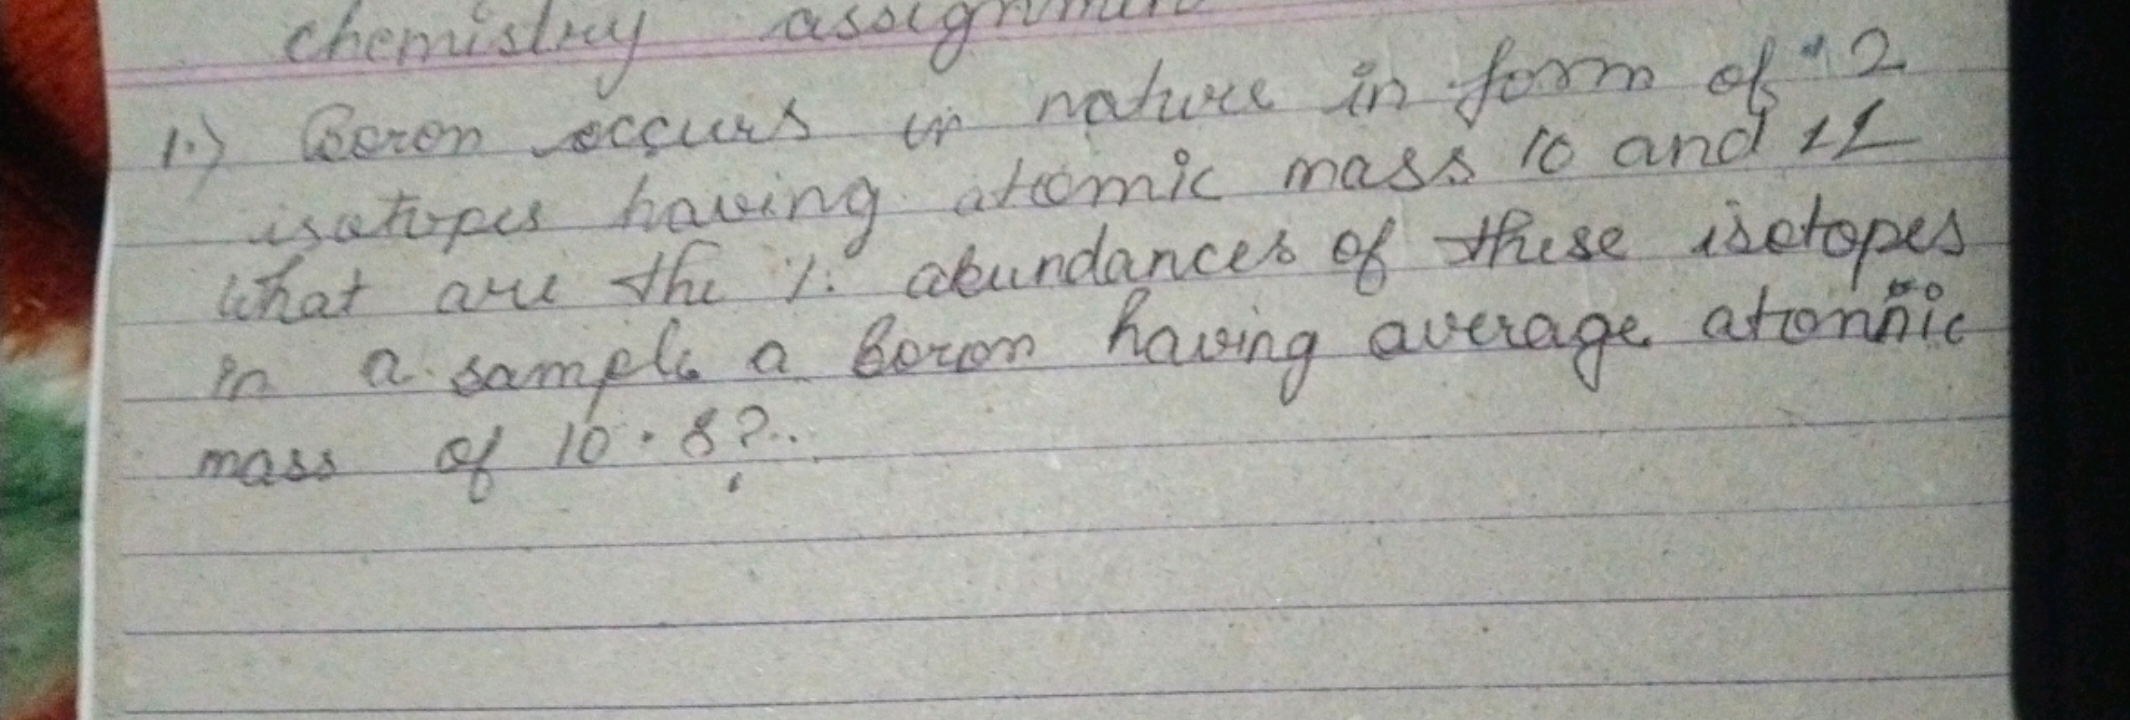 chemistry assignment
1.) Boron occurs in nature in form of 2
isotopes having atomic mass 10 and 11
What are the % abundances of these isotopes
in a sample a Boron having average atomic
mass of 10.8?..